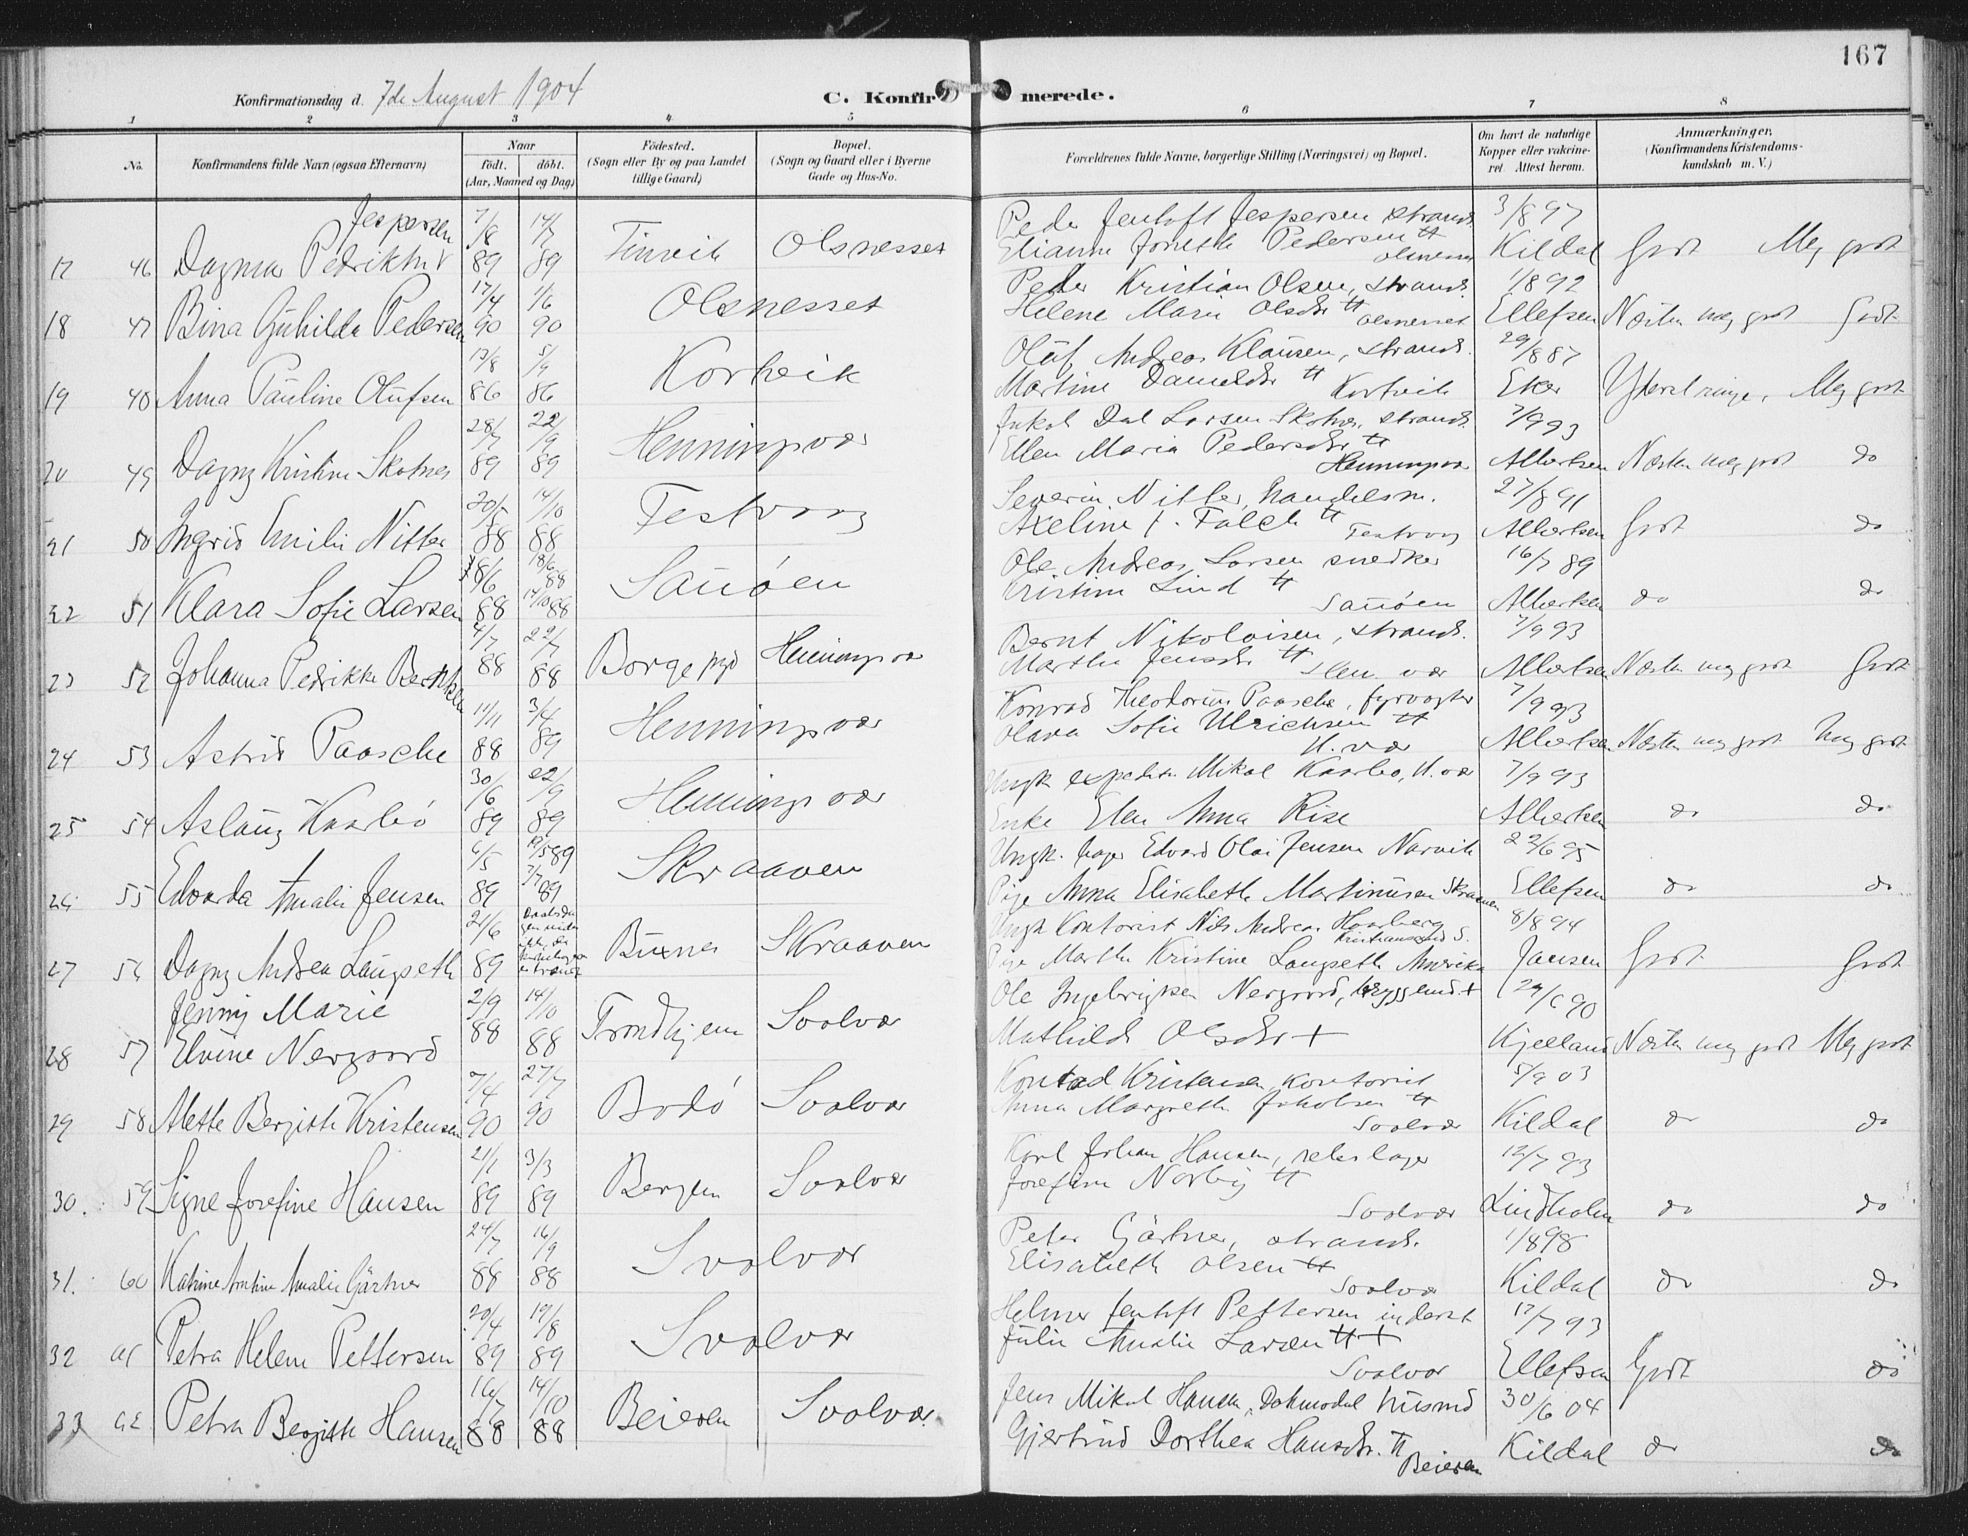 167
Konfirmationsdag d. 7de August 1904 C. Konfirmerede.
1 2 3 4 5 6 7 8
No. Konfirmandens fulde Navn (ogsaa Efternavn) Naar født. døbt. (Aar, Maaned og Dag) Fødested. (Sogn eller By og paa Landet tillige Gaard) Bopæl. (Sogn og Gaard eller i Byerne Gade og Hus-No. Forældrenes fulde Navne, borgerlige Stilling (Næringsvei) og Bopæl. Om havt de naturlige Kopper eller vakcineret. Attest herom. Anmærkninger. (Konfirmandens Kristendomskundskab m. V.)
Jespersen 7/8 14/7 Peder Jentoft Jespersen strands. 3/8 97
17 46 Dagmar 89 89 Tinvik Olsnesset Elianne Pedersen Olsnesset Kildal Godt Meg godt
17/4 1/6 Peder Kristian Olsen, strands. 1/8 92
18 47 Bina Gunhilda Pedersen 90 90 Olsnesset Helene Marie Olsdtr Olsnesset Ellefsen Næsten meg godt Godt
13/8 5/9 Oluf Andreas Klausen, strands. 29/8 87
19 48 Anna Pauline Olufsen 86 86 Kortveik Martine Kortveik Eker Yderst ringe, Meg godt
28/7 22/9 Larsen Skotnes strands. 7/9 93
20 49 Dagny Kristine Skotnes 89 89 Henningsvær Ellen Maria Pedersdtr Henningsvær Albertsen Næsten meg godt do
20/5 14/10 Severin Nitter, handelsm. 27/8 91
21 50 Ingrid Emilie Nitter 88 88 Festvaag Axeline J. Falch Festvaag Albertsen Godt do
8/6 18/6 88 Ole Andreas Larsen snedker 16/7 89
22 51 Klara Sofie Larsen 88 14/10 88 Sauøen Kristine Lind Sauøen Albertsen do do
4/7 22/7 Bernt Nikolaisen, strands. 7/9 93
23 52 Johanna Pedrikke 88 88 Borge pgd Henningsvær Marthe Jensdtr Albertsen Næsten meg godt Godt
14/11 3/4 Konrad Theodorius Paasche, fyrvogter 7/9 93
24 53 Astrid Paasche 88 89 Henningsvær Olava Sofie Ulrichsen H.vær Albertsen Næsten meg godt Meg godt
30/6 22/9 Ungk. expeditr Mikal Kaarbø, H.vær 7/9 93
25 54 Aslaug Kaarbø 89 89 Henningsvær Enke Elen Anna Rise Albertsen do do
6/5 89 Ungk. Edvard Olai Jensen Narvik 22/6 95
26 55 Edvarda Amalie Jensen 89 7/7 89 Skraaven Pige Anna Elisabeth Martinusen Skraaven Ellefsen do do
21/6 Ungk Kontorist Nils Andreas Haaberg Kristianssund S. 8/8 94
27 56 Dagny Andrea Langseth 89 Buxnes Skraaven Pige Marthe Kristine Langseth Amerika Jansen Godt Godt
Jenny Marie 2/9 14/10 Ole Ingebrigtsen Nergaard, bryggemd + 29/6 90
28 57 Elvine Nergaard 88 88 Trondhjem Svolvær Mathilde Olsdtr + Kjelland Næsten meg godt Meg godt
7/4 27/7 Konrad Kristensen, kontorist 5/9 03
29 58 Mette Bergitte Kristensen 90 90 Bodø Svolvær Anna Margrethe Jakobsen Svolvær Kildal do do
21/1 3/3 Karl Johan Hansen, rebslager 12/7 93
30. 59 Signe Josefine Hansen 89 89 Bergen Svolvær Josefine Norby Svolvær Lindholm do do
24/7 16/9 Peter Gärtner, strands. 1/8 98
31. 60 Katrine Amalie Gärtner 88 88 Svolvær Elisabeth Olsen Svolvær Kildal do do
20/4 19/8 Helmer Jentoft Pettersen inderst 17/7 93
32 61 Petra Helene Pettersen 89 89 Svolvær Julie Amalie Larsen + Svolvær Ellefsen Godt do
16/7 14/10 Jens Mikal Hansen, husmd 30/6 04
33 62 Petra Bergitte Hansen 88 88 Beieren Svolvær Gjertrud Dorthea Hansdtr. Beieren Kildal do do